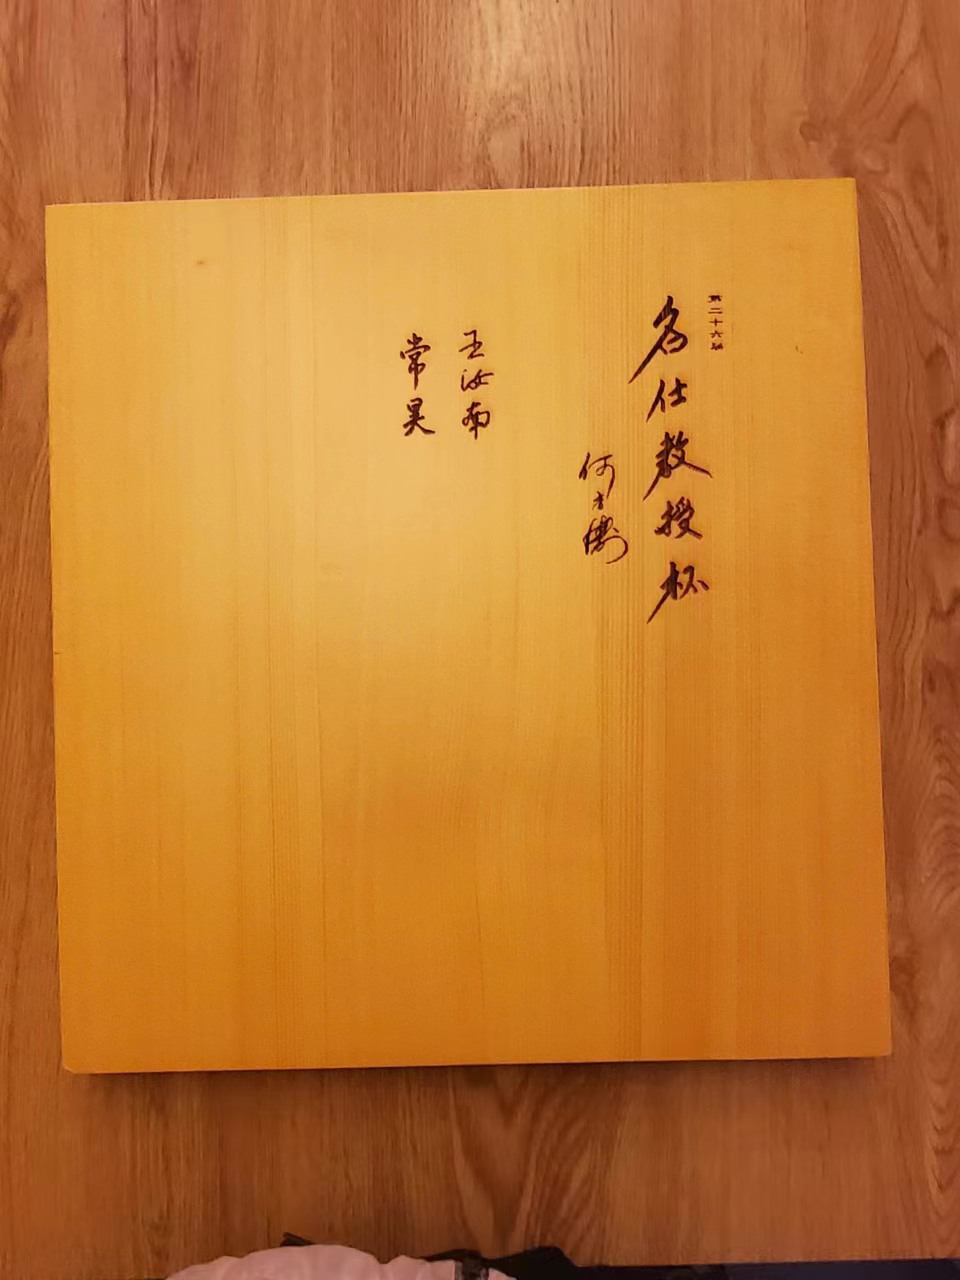 第二十六届
名仕教授杯
何
王汝南
常昊